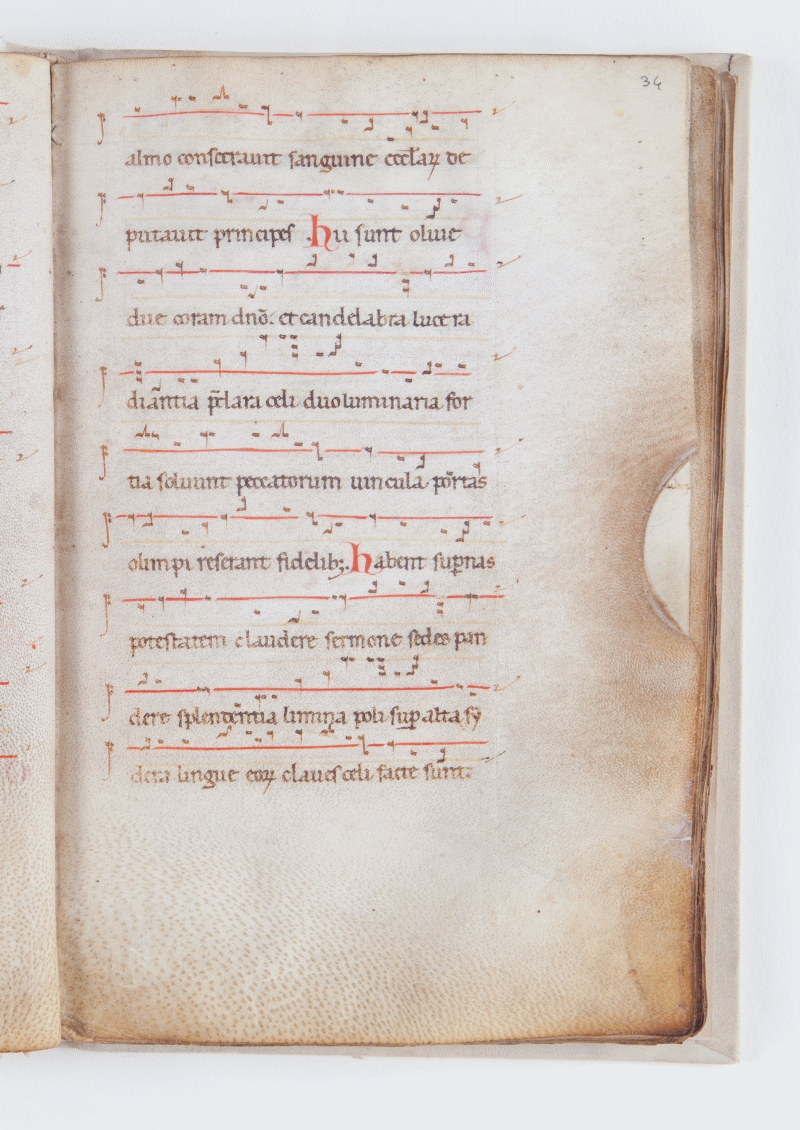 34
almo consecrauit sanguine eccl̄aꝝ de
putauit principes .hii sunt oliue
due coram dnō. et candelabra luce ra
diantia p̄clara celi duo luminaria for
tia soluunt peccatorum uincula portas
olimpi reserant fidelibꝫ. habent suꝑnas
potestatem claudere sermone sedes pan
dere splendentia limina poli suꝑ alta sẏ
dera lingue eoꝝ claues celi facte sunt.